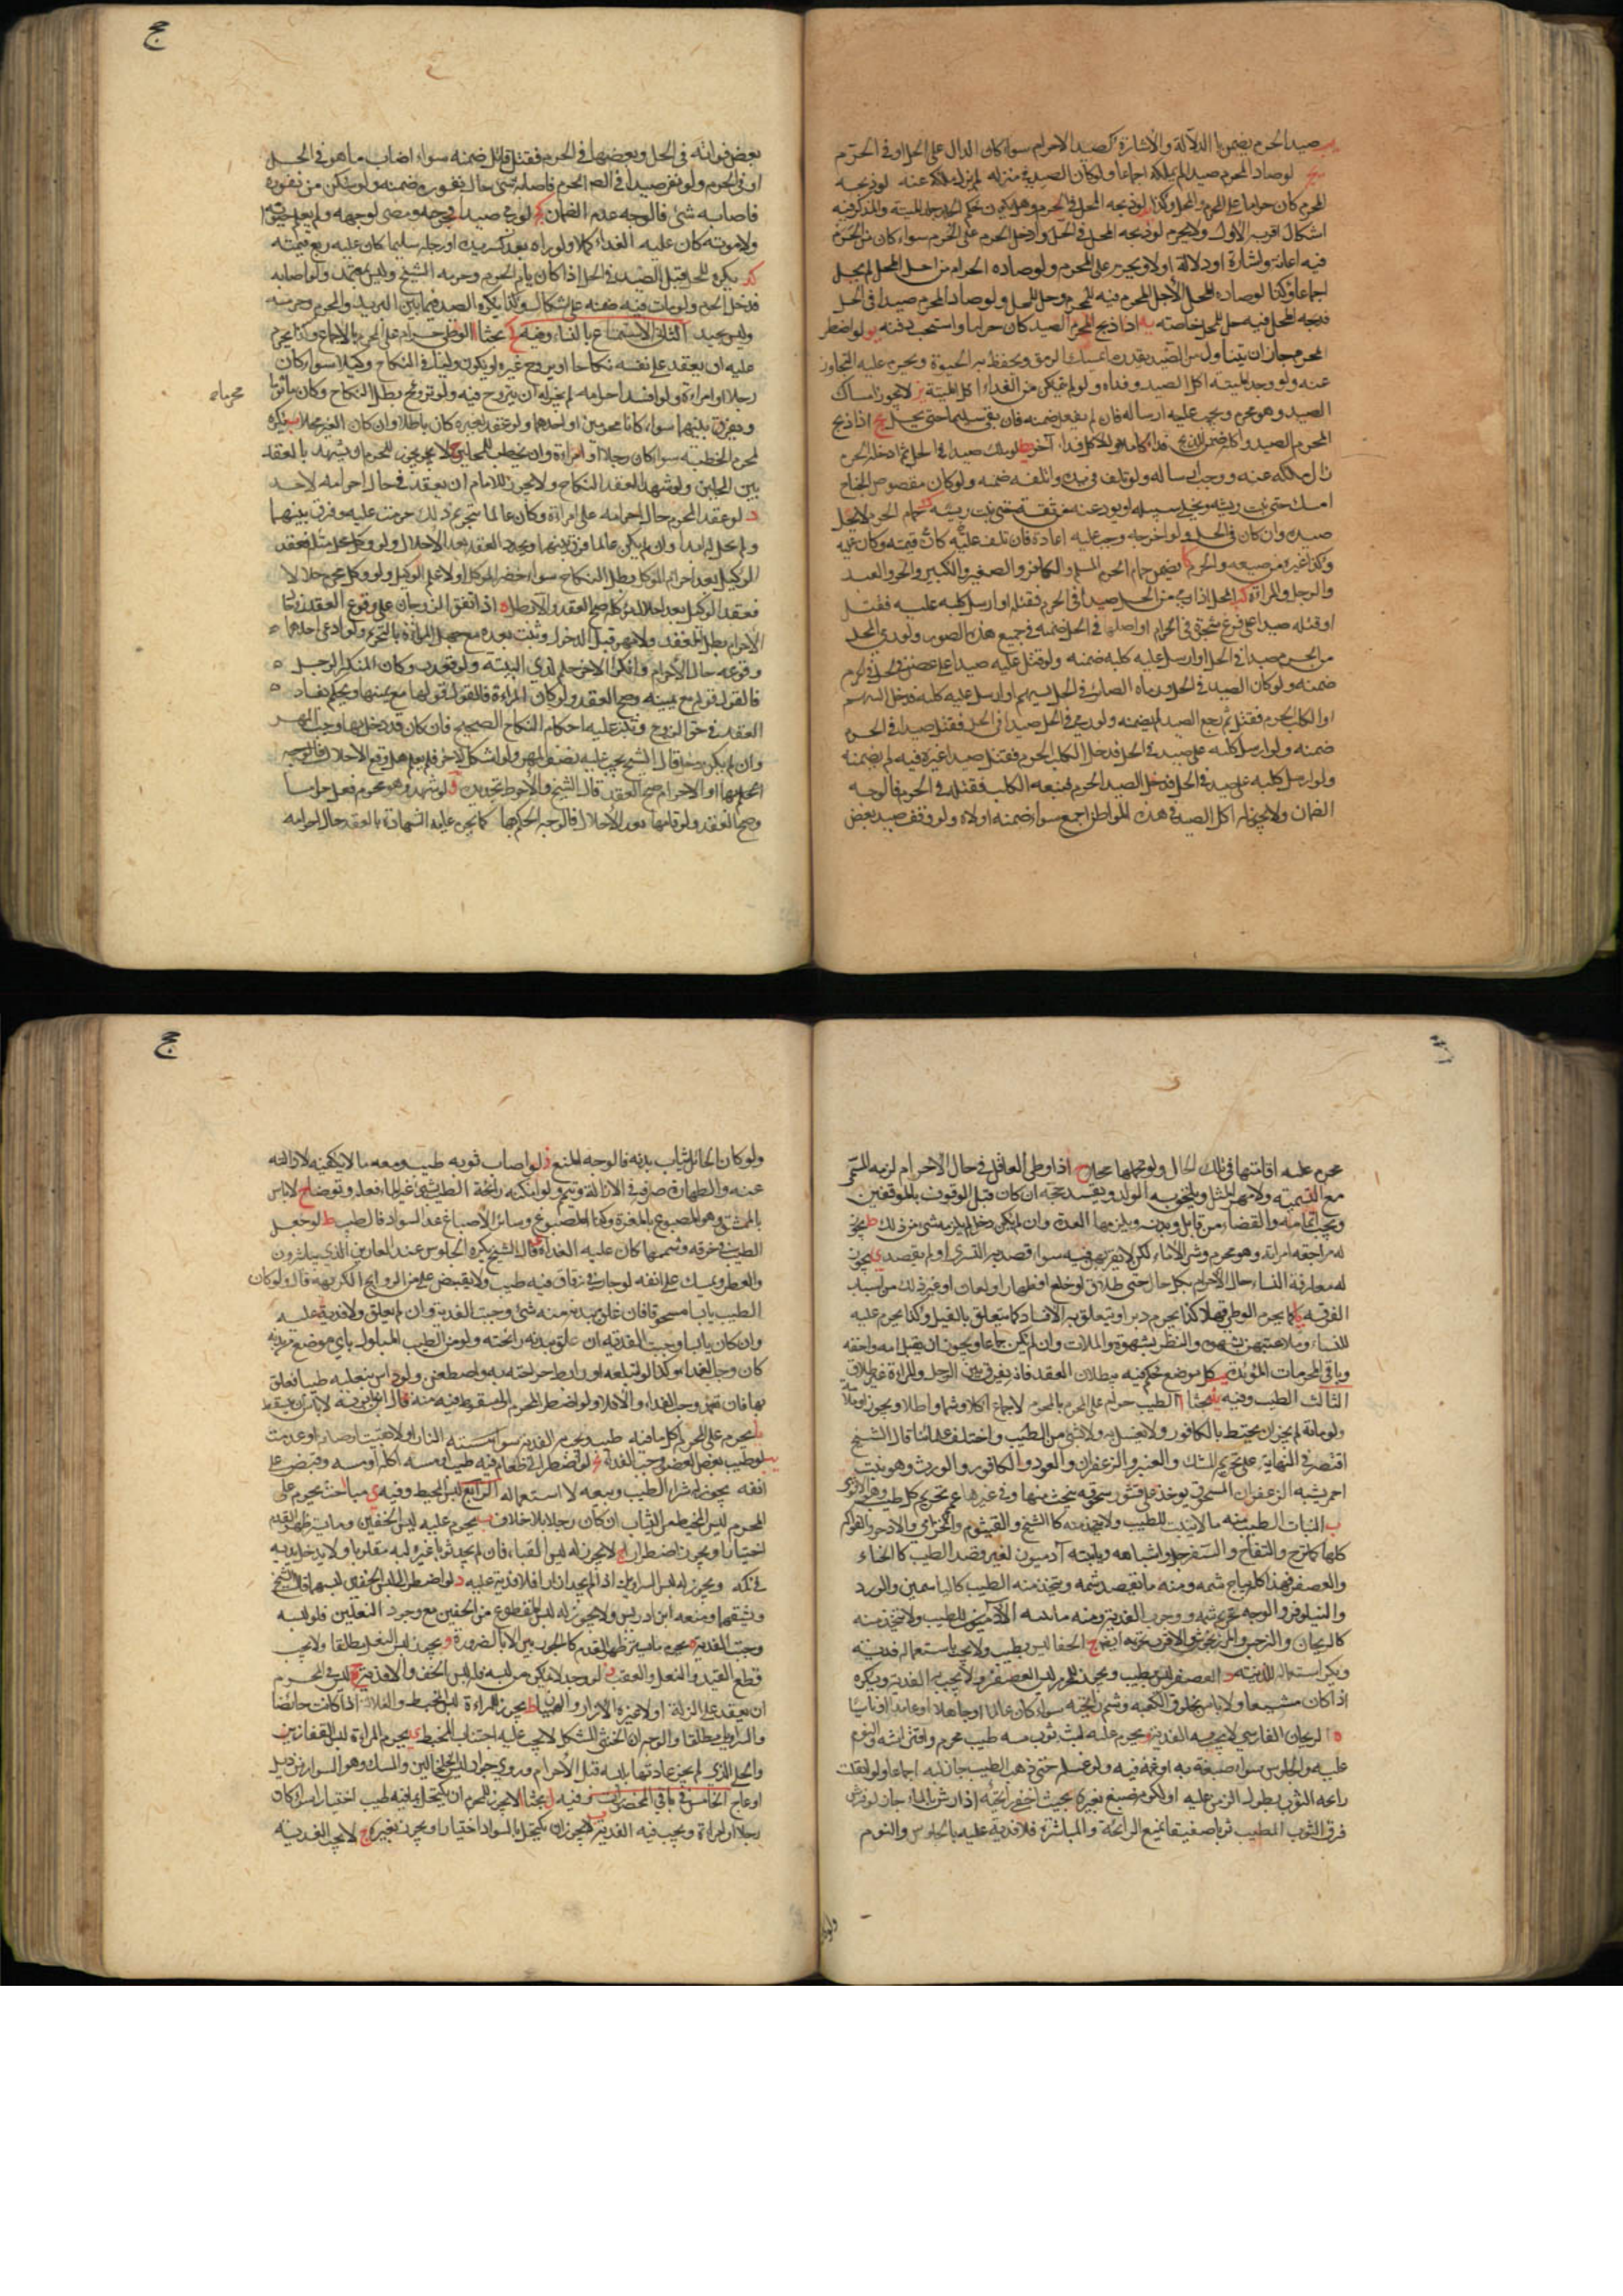 صيد الحرم يضمن بالدلالة والاشارة كصيد الاحرام سواء كان الدال على الحل او في الحرم
لو صاد المحرم صيدا لم يملكه اجماعا ولو كان الصيد في منزله لم يزل ملكه عنه لو ذبحه
المحرم كان حراما على المحرم والمحل وكذا لو ذبحه المحل في الحرم وهل يكون حكم الميتة
اشكال اقربه الاول ولا يحرم لو ذبحه المحل في الحل وادخل الحرم على المحرم سواء كان من المحرم
فيه اعانة واشارة او دلالة او لا ويحرم على المحرم ولو صاده الحرام من اجل المحل لم يحل
اجماعا وكذا لو صاده المحل لاجل المحرم فيه للمحرم وحل للمحل ولو صاد المحرم صيدا في الحل
فذبحه المحل فيه حل للمحل خاصة يه اذا ذبح المحرم الصيد كان حراما واستحب دفنه يو لو اضطر
المحرم جاز ان يتناول من الصيد بقدر ما يمسك الرمق ويحفظ به الحيوة ويحرم عليه التجاوز
عنه ولو وجد الميتة اكل الصيد وفداه ولو لم يتمكن من الفداء اكل الميتة يز لا يجوز امساك
الصيد وهو محرم ويجب عليه ارساله فان لم يفعل ضمنه فان بقى سليما حتى يحل يح اذا ذبح
المحرم الصيد واكله ضمن للذبح فداء كاملا وللاكل فداء آخر يط لو ملك صيدا في الحل ثم ادخله الحرم
زال ملكه عنه ووجب ارساله ولو تلف في يده او اتلفه ضمنه ولو كان مقصوص الجناح
امسك حتى ينبت ريشه ويخلى سبيله او يودعه من ثقة حتى ينبت ريشه ك حمام الحرم لا يحل
صيده وان كان في الحل ولو اخرجه وجب عليه اعادته فان تلف عليه كان قيمته وكان عليه
وكذا غيره من صيده والحرم كا يضمن حمام الحرم المسلم والكافر والصغير والكبير والحر والعبد
والرجل والمراة كب المحل اذا رمى من الحل صيدا في الحرم فقتله او ارسل كلبه عليه فقتله
او قتله صيدا على فرع شجرة في الحرم او اصلها في الحل ضمنه في جميع هذه الصور ولو رمى المحل
من الحرم صيدا في الحل او ارسل عليه كلبه ضمنه ولو قتل عليه صيدا على غصن في الحل في الحرم
ضمنه ولو كان الصيد في الحل ورماه الصائد في الحل بسهم او ارسل عليه كلبه فدخل السهم
او الكلب الحرم فقتله ثم رجع الصيد لم يضمنه ولو رمى في الحل صيدا في الحل فقتل صيدا في الحرم
ضمنه ولو ارسل كلبه على صيد في الحل فدخل الكلب الحرم فقتل صيدا غيره فيه لم يضمنه
ولو ارسل كلبه على صيد في الحل فدخل الصيد الحرم فتبعه الكلب فقتله في الحرم فالوجه
الضمان ولا يجوز له اكل الصيد في هذه المواطن اجمع سواء ضمنه او لا ولو وقف صيد بعض
ج
بعض قوائمه في الحل وبعضها في الحرم فقتله قاتل ضمنه سواء اصاب ما هو في الحل
او في الحرم ولو نفر صيدا في الحرم فاصابه شئ حال نفوره ضمنه ولو سكن من نفوره
فاصابه شئ فالوجه عدم الضمان لو رمى صيدا فجرحه ومضى لوجهه ولم يعلم حيوته
ولا موته كان عليه الفداء كملا ولو راه بعد كسر يده او رجله سليما كان عليه ربع قيمته
كد يكره للمحل قتل الصيد في الحل اذا كان يؤم الحرم وحرمه الشيخ وليس بمعتمد ولو اصابه
فدخل الحرم ومات فيه ضمنه على اشكال وكذا يكره الصيد فيما بين البريد والحرم وحرمه
وليس بجيد الثاني الاستمتاع بالنساء وفيه بحثا ا الوطئ حرام على المحرم بالاجماع وكذا يحرم
عليه ان يعقد على نفسه نكاحا او يزوج غيره او يكون وليا في النكاح وكيلا سواء كان
رجلا او امراة ولو افسد احرامه لم يجز له ان يتزوج فيه ولو تزوج محرم بطل النكاح وكان
ويفرق بينهما سواء كانا محرمين او احدهما ولو عقد لغيره كان باطلا وان كان الغير محلا ب يكره
محرماه
للمحرم الخطبة سواء كان رجلا او امراة وان يخطب للمحلين ج لا يجوز للمحرم ان يشهد بالعقد
بين المحلين ولو شهد انعقد النكاح ولا يجوز للامام ان يعقد في حال احرامه لاحد
د لو عقد المحرم حال احرامه على امراة وكان عالما بتحريم ذلك حرمت عليه وفرق بينهما
ولم تحل له ابدا وان لم يكن عالما فرق بينهما ويجدد العقد بعد الاحلال ولو وكل محل محلا فعقد
الوكيل بعد احرام الموكل بطل النكاح سواء حضره الموكل او لا علم الوكيل ولو وكل محرم حلالا
فعقد الوكيل بعد احلال الموكل صح العقد والا بطل ه اذا اتفق الزوجان على وقوع العقد في حال
الاحرام بطل العقد ولا مهر قبل الدخول ويثبت بعده مع جهل المراة بالتحريم ولو ادعى احدهما
وقوعه حال الاحرام وانكر الاخر حكم لذي البينة ولو فقدت وكان المنكر الرجل
فالقول قوله مع يمينه وصح العقد ولو كان المراة فالقول قولها مع يمينها ويحكم بفساد
العقد في حق الزوج وتثبت عليه احكام النكاح الصحيح فان كان قد دخل بها وجب المهر
وان لم يكن دخل قال الشيخ يجب عليه نصف المهر ولو اشكل الامر فلم يعلم هل وقع الاحلال
او الاحرام صح العقد قال الشيخ والاحوط تجديده و لو شهد وهو محرم فعل حراما
وصح العقد ولو اقامها بعد الاحلال فالوجه الحكم بها كما يحرم عليه الشهادة بالعقد حال احرامه
محرم عليه اقامتها في تلك الحال ولو تحملها محلا ح اذا وطى العاقد في حال الاحرام لزمه المسمى
مع التسمية ولا مهر المثل ويلحق به الولد ويفسد حجه ان كان قبل الوقوف بالموقفين
ويجب اتمامه والقضاء من قابل وبدنه ويلزمها العدة وان لم يكن دخل لم يلزمه شئ من ذلك ط يجوز
له مراجعة امراته وهو محرم وشرى الاماء لكن لا يقربهن فيه سواء قصد به التسري او لم يقصد ي يجوز
له مفارقة النساء حال الاحرام بكل حال حتى طلاق او خلع او ظهار او لعان او غير ذلك من اسباب
الفرقة يا كما يحرم الوطي قبلا كذا يحرم دبرا ويتعلق به الافساد كما يتعلق بالقبل وكذا يحرم عليه
النساء وملاعبتهن بشهوة والنظر بشهوة والملامسة وان لم يكن جماع ويجوز ان يقبل امه واخته
وباقي المحرمات المؤبدة يب كل موضع حكم فيه ببطلان العقد فانه يفرق بين الرجل والمراة بغير طلاق
الثالث الطيب وفيه بحثا ا الطيب حرام على المحرم بالاجماع اكلا وشما واطلاء ويجوز
ولو مات لم يجز ان يحنط بالكافور ولا يغسل به ولا بشئ من الطيب واختلف علماؤنا قال الشيخ
اقتصر في النهاية على تحريم المسك والعنبر والزعفران والعود والكافور والورس وهو نبت
احمر يشبه الزعفران المسحوق يوجد على قشور شجرة ينحت منها وفي غيرها عمم تحريم كل طيب
ب النبات الطيب منه ما لا ينبت للطيب ولا يتخذ منه كالشيح والقيصوم والخزامى والاذخر والفواكه
كلها كالاترج والتفاح والسفرجل واشباهه وينبته آدميون لغير قصد الطيب كالحناء
والعصفر فهذا كله يباح شمه ومنه ما يقصد شمه ويتخذ منه الطيب كالياسمين والورد
والنيلوفر والوجه تحريم شمه ووجوب الفدية ومنه ما ينبته الآدميون للطيب ولا يتخذ منه
كالريحان والنرجس والمرزنجوش والاقرب تحريمه ايضا ج الحناء ليس بطيب ولا يجب باستعماله فدية
ويكره استعماله للزينة د العصفر ليس بطيب ويجوز للمحرم لبس المعصفر ولا يجب به الفدية ويكره
اذا كان مشبعا ولا باس بخلوق الكعبة وشم رائحته سواء كان عالما او جاهلا او عامدا او ناسيا
ه الريحان الفارسي لا يجب به الفدية و يحرم عليه لبس ثوب مسه طيب محرم وافتراشه والنوم
عليه والجلوس سواء صبغه به او غمسه فيه ولو غسل حتى ذهب الطيب جاز لبسه اجماعا ولو انقطعت
رائحة الثوب بطول الزمن عليه او لكونه صبغ بغيره بحيث لا يظهر رائحته اذا رش بالماء جاز ولو فرش
فوق الثوب المطيب ثوبا صفيقا يمنع الرائحة والمباشرة فلا فدية عليه بالجلوس والنوم
ج
ولو كان الحائل ثياب بدنه فالوجه المنع ز لو اصاب ثوبه طيب ومعه ما لا يكفيه لازالته
عنه والطهارة صرفه في الازالة وتيمم ولو امكنه رائحة الطيب بشئ غير الماء فعله وتوضا ح لا باس
بالممشق وهو المصبوغ بالمغرة وكذا المصبوغ وسائر الاصباغ عدا السواد فالطيب ط لو جعل
الطيب في خرقة وشمها كان عليه الفداء قال الشيخ يكره الجلوس عند العطارين الذين يباشرون
والعطر ويمسك على انفه لو جاز في زقاق فيه طيب ولا يقبض عليه من الروائح الكريهة قال ولو كان
الطيب يابسا مسحوقا فان علق ببدنه منه شئ وجبت الفدية وان لم يعلق فلا فدية عليه
وان كان يابسا وجبت الفدية ان علق ببدنه رائحته ولو مس الطيب المبلول باي موضع من بدنه
كان وجب الفداء وكذا لو ابتلعه او ربط جراحته به او استعطى ولو داس بنعله طيبا فعلق
بها فان تعمد وجب الفداء والا فلا ولو اضطر المحرم الى سعوط فيه مسك قال لا باس ان يستعط
يا يحرم على المحرم اكل ما فيه طيب ويجب الفدية سواء مسته النار او لا بقيت اوصافه او عدمت
يب لو طيب بعض العضو وجبت الفدية يج لو اضطر الى طعام فيه طيب او مسه اكله او مسه وقبض على
انفه يجوز له شراء الطيب وبيعه لا استعماله الرابع لبس المخيط وفيه ي مباحث ا يحرم على
المحرم لبس المخيط من الثياب ان كان رجلا بلا خلاف ب يحرم عليه لبس الخفين وما يستر ظهر القدم
اختيارا ويجوز اضطرارا ج لا يجوز له لبس القباء فان لم يجد ثوبا غيره لبسه مقلوبا ولا يدخل يديه
في كمه ويجوز له لبس السراويل اذا لم يجد ازارا فلا فدية عليه د لو اضطر الى لبس الخفين لبسهما قال الشيخ
ويشقهما ومنعه ابن ادريس ولا يجوز له لبس المقطوع من الخفين مع وجود النعلين فلو لبسه
وجبت الفدية ه يحرم ما يستر ظهر القدم كالجورب الا بالضرورة و يجوز لبس النعل مطلقا ولا يجب
قطع القيد والنعل والعقب
ان يعقد على الرداء او لا غيره الا الازار والهميان ط يجوز للمراة لبس المخيط والغلالة اذا كانت حائضا
والسراويل مطلقا والوجه ان الخنثى المشكل لا يجب عليه اجتناب المخيط ي يحرم للمراة لبس القفازين
والحلي الذي لم يجز عادتها بلبسه قبل الاحرام وروي جواز لبس الخلخالين والمسك وهو السوار من ذبل
او عاج الخامس في باقي المحظورات وفيه بحثا ا لا يجوز للمحرم ان يكتحل بما فيه طيب اختيارا سواء كان
رجلا او امراة ويجب فيه الفدية ب لا يجوز ان يكتحل بالسواد اختيارا ويجوز بغيره ج لا يجب الفدية